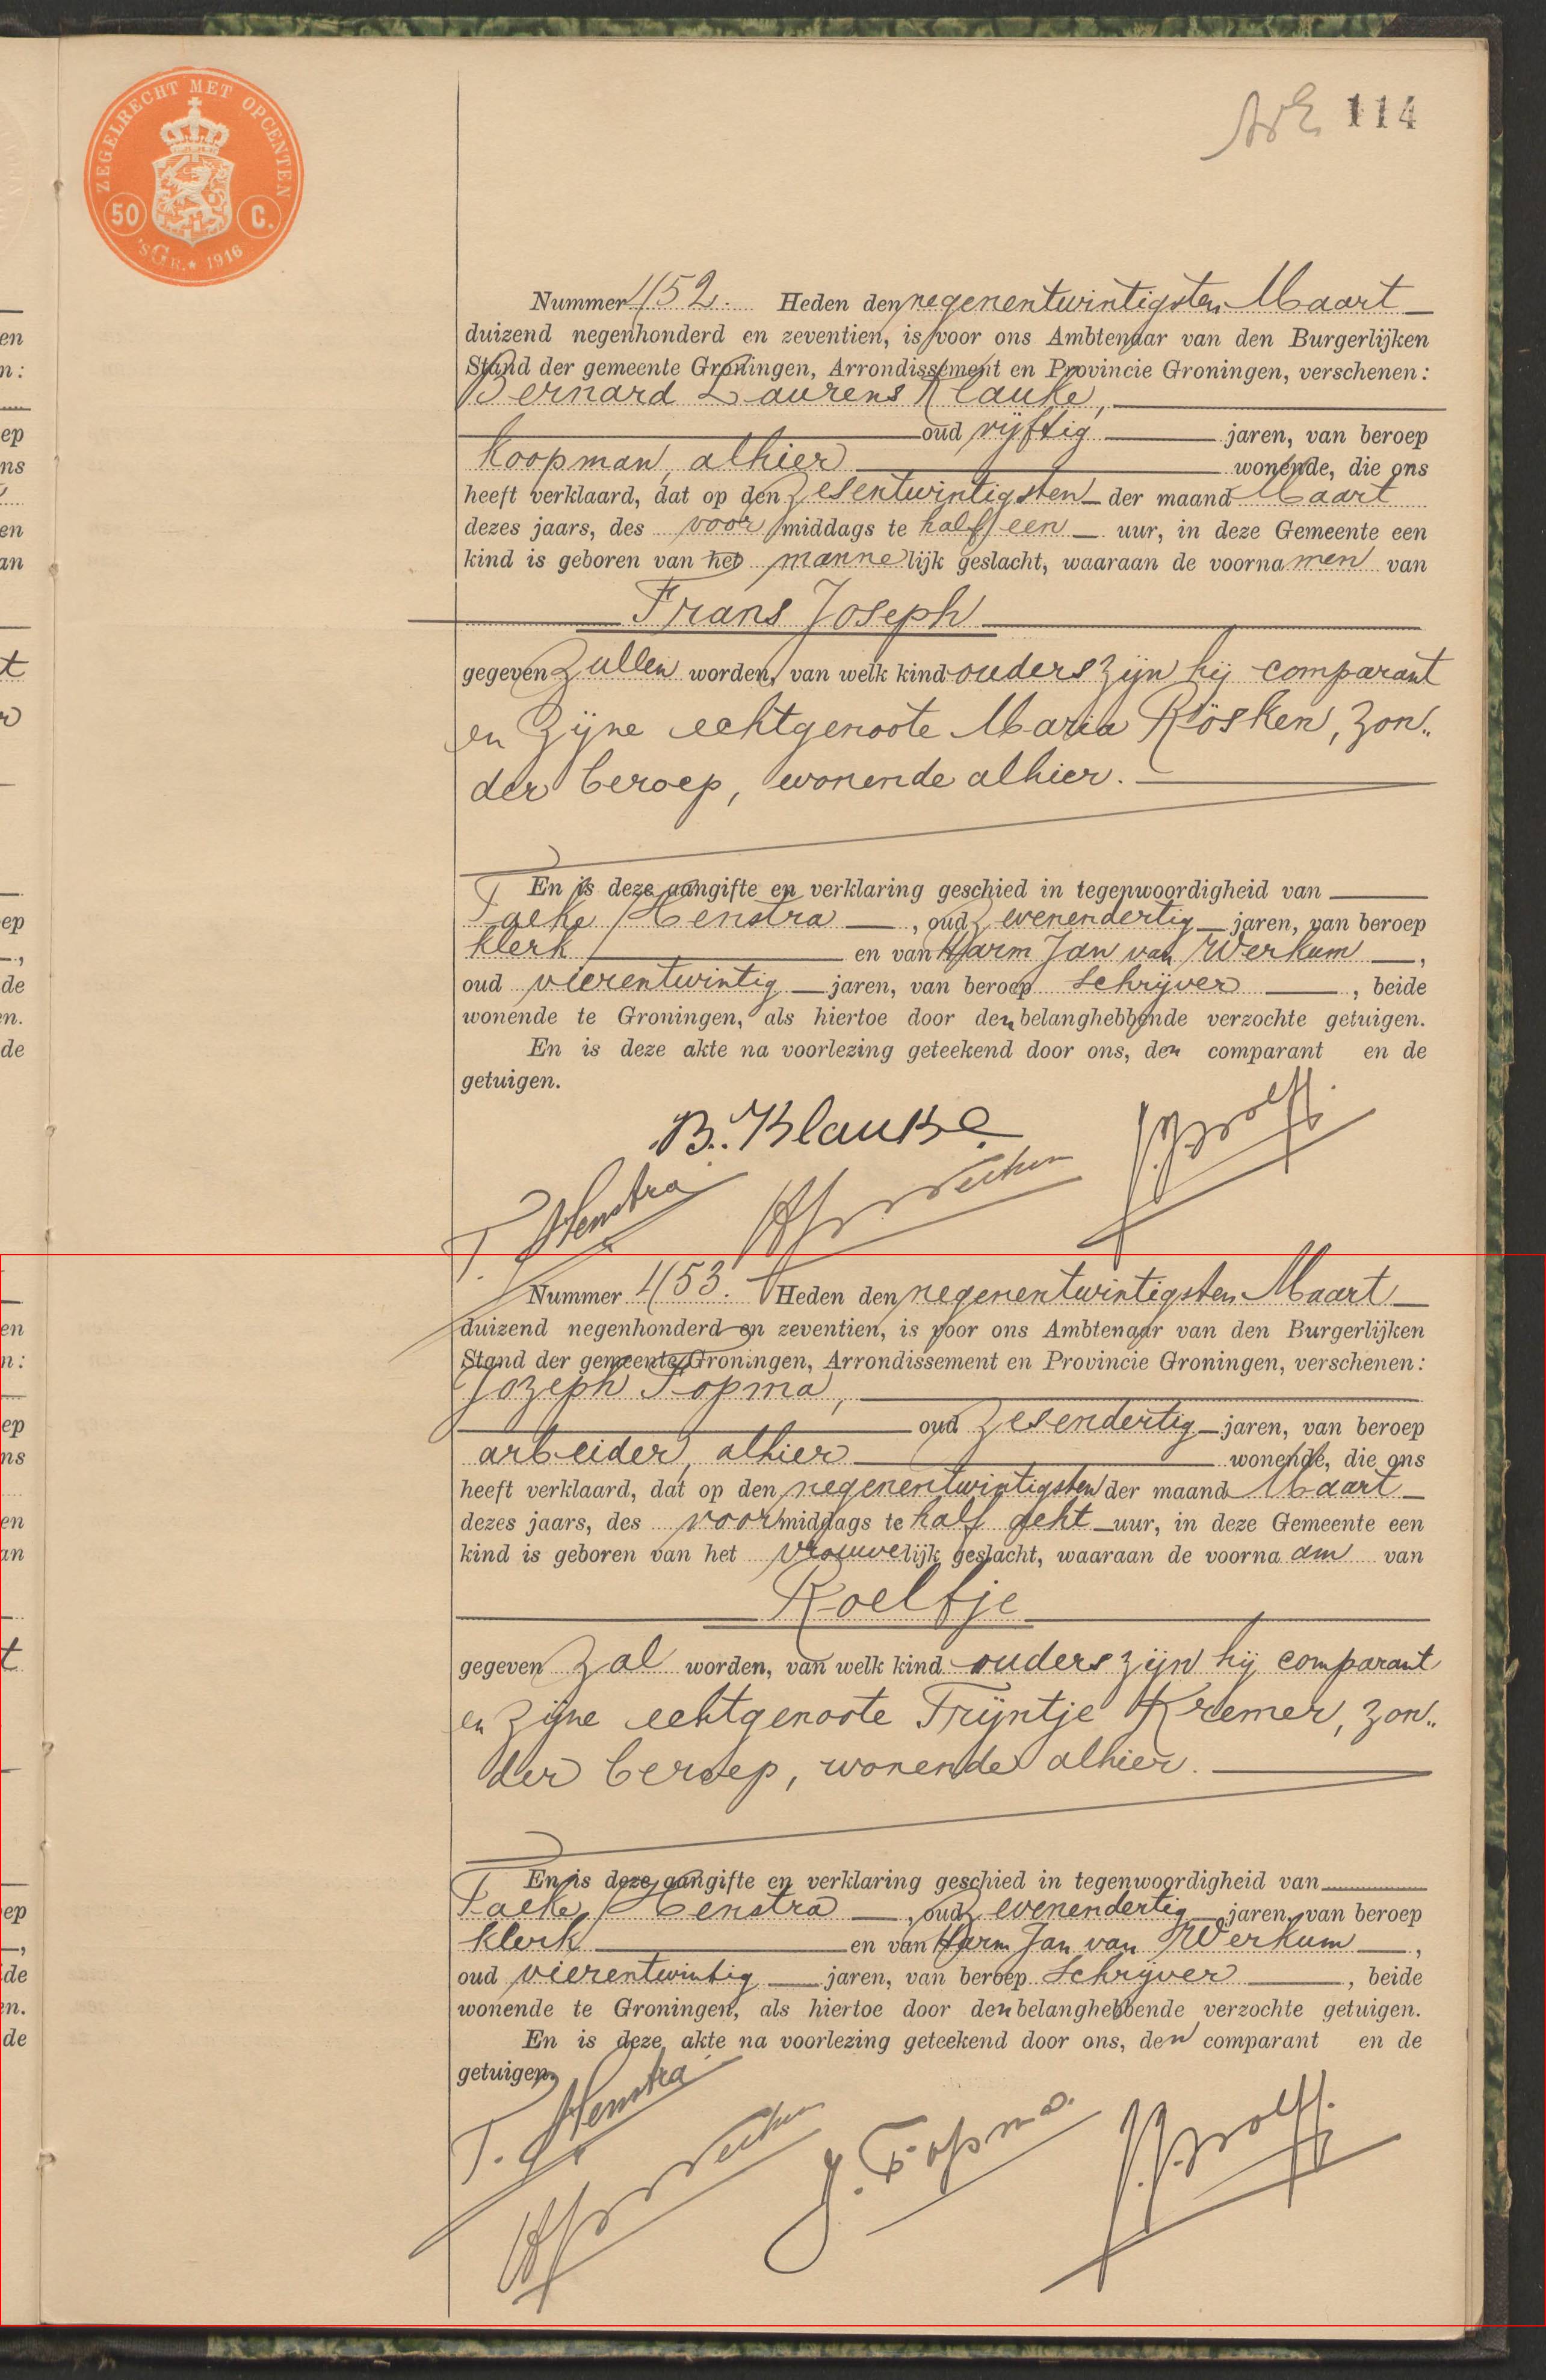 ZEGELRECHT MET OPCENTEN
50 C.
'sGR.★1916
114
Nummer 452. Heden den negenentwintigsten Maart
duizend negenhonderd en zeventien, is voor ons Ambtenaar van den Burgerlijken
Stand der gemeente Groningen, Arrondissement en Provincie Groningen, verschenen:
Bernard Laurens Klauke,
oud vijftig jaren, van beroep
koopman, alhier wonende, die ons
heeft verklaard, dat op den zesentwintigsten der maand Maart
dezes jaars, des voormiddags te half een uur, in deze Gemeente een
kind is geboren van het mannelijk geslacht, waaraan de voornamen van
Frans Joseph
gegeven zullen worden, van welk kind ouders zijn hij comparant
en zijne echtgenoote Maria Rösken, zon„
der beroep, wonende alhier.
En is deze aangifte en verklaring geschied in tegenwoordigheid van
Taeke Henstra, oud zevenendertig jaren, van beroep
klerk en van Harm Jan van Werkum,
oud vierentwintig jaren, van beroep schrijver, beide
wonende te Groningen, als hiertoe door den belanghebbende verzochte getuigen.
En is deze akte na voorlezing geteekend door ons, den comparant en de
getuigen.
B. Klauke
T. Henstra
Nummer 453. Heden den negenentwintigsten Maart
duizend negenhonderd en zeventien, is voor ons Ambtenaar van den Burgerlijken
Stand der gemeente Groningen, Arrondissement en Provincie Groningen, verschenen:
Jozeph Fopma,
oud zesendertig jaren, van beroep
arbeider, alhier wonende, die ons
heeft verklaard, dat op den negenentwintigsten der maand Maart
dezes jaars, des voormiddags te half acht uur, in deze Gemeente een
kind is geboren van het vrouwelijk geslacht, waaraan de voornaam van
Roelfje
gegeven zal worden, van welk kind ouders zijn hij comparant
en zijne echtgenoote Trijntje Kremer, zon„
der beroep, wonende alhier.
En is deze aangifte en verklaring geschied in tegenwoordigheid van
Taeke Henstra, oud zevenendertig jaren, van beroep
klerk en van Harm Jan van Werkum,
oud vierentwintig jaren, van beroep schrijver, beide
wonende te Groningen, als hiertoe door den belanghebbende verzochte getuigen.
En is deze akte na voorlezing geteekend door ons, den comparant en de
getuigen.
T. Henstra
J. Fopma.